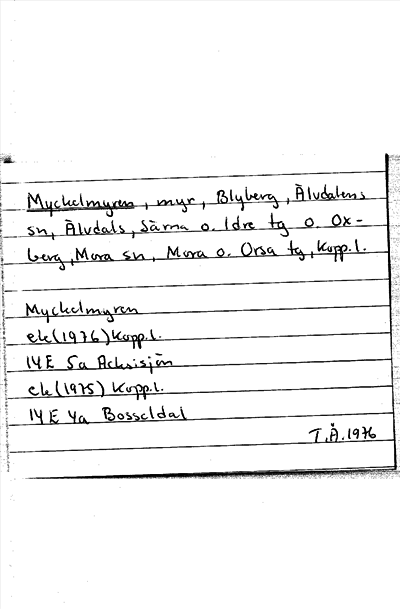 Myckelmyren, myr, Blyberg, Älvdalens
sn, Älvdals, Särna o. Idre tg o. Ox-
berg, Mora sn, Mora o. Orsa tg, Kopp.l.
Myckelmyren
ek(1976)Kopp.l.
14E 5a Acksisjön
ek(1975) Kopp.l.
14E 4a Bosseldal
T.Å.1976